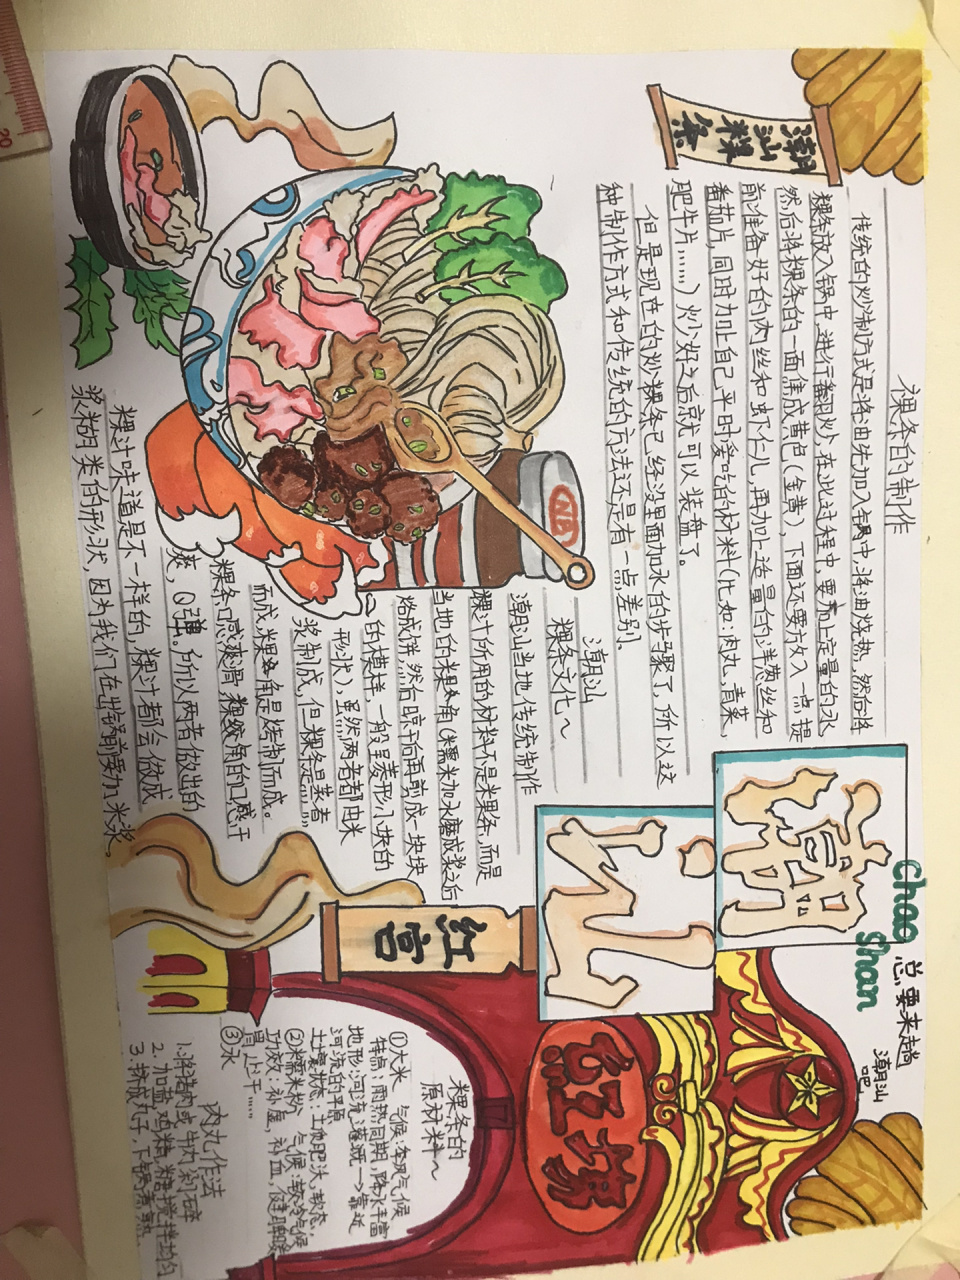 潮汕粿条
粿条的制作
传统的炒制方式是将油先加入锅中,将油烧热,然后将
粿条放入锅中,进行翻炒,在此过程中,要加上定量的水,
然后将粿条的一面焦成黄色(金黄),下面还要放入一点提
前准备好的肉丝和虾仁儿,再加上适量的洋葱丝和
番茄片,同时加上自己平时爱吃的材料(比如:肉丸、青菜、
肥牛片……)炒好之后就可以装盘了。
但是现在的炒粿条已经没里面加水的步骤了,所以这
种制作方式和传统的方法还是有一点差别。
潮汕
粿条文化~
潮汕当地,传统制作
粿汁所用的材料不是粿条,而是
当地的粿角(糯米加水磨成浆之后
烙成饼,然后晾干后再剪成一块块
的模样,一般呈菱形小块的
形状),虽然两者都由米
浆制成,但粿条是蒸煮
而成,粿角是烤制而成。
粿条口感爽滑,粿绞角的口感干
爽,Q弹。所以两者做出的
粿汁味道是不一样的,粿汁都会做成
浆糊类的形状,因为我们在出锅前要加米浆。
潮
汕
chao
shan
总要来趟
潮汕
吧
红宫
红场
粿条的
原材料~
①大米 气候:季风气候
特点:雨热同期,降水丰富
地形:河流灌溉→靠近
河流的平原
土壤状态:土地肥沃,软态
②糯米粉 气候:较冷气候
功效:补虚、补血、健脾暖
胃、止汗……
③水
肉丸作法
1.将猪肉或牛肉剁碎
2.加盐,鸡精,糖搅拌均匀
3.挤成丸子,下锅煮熟